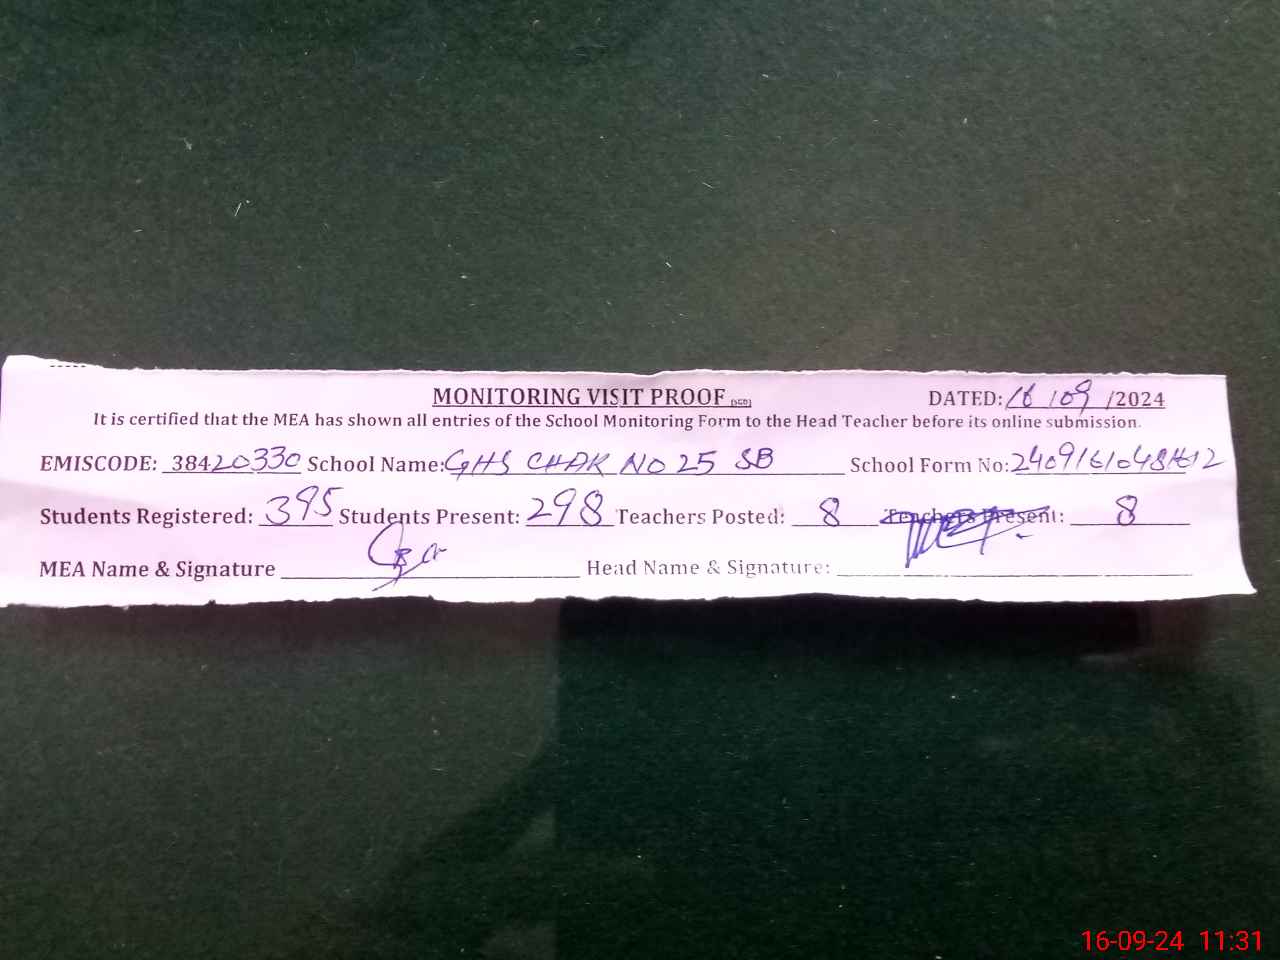 MONITORING VISIT PROOF (SGD) DATED: 16/09/2024
It is certified that the MEA has shown all entries of the School Monitoring Form to the Head Teacher before its online submission.
EMISCODE: 38420330 School Name: GHS CHAK NO 25 SB School Form No:
Students Registered: 395 Students Present: 298 Teachers Posted: 8 Teachers Present: 8
MEA Name & Signature Head Name & Signature:
16-09-24 11:31